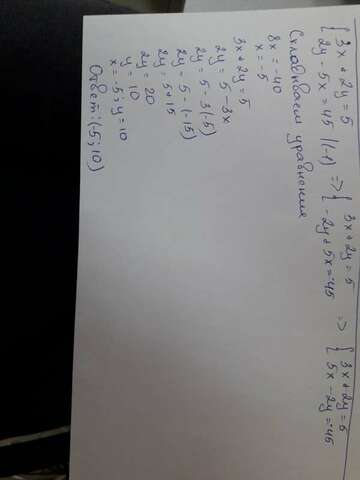 { 3x + 2y = 5 2y - 5x = 45 |(-1) => { 3x + 2y = 5 -2y + 5x = -45 => { 3x + 2y = 5 5x - 2y = -45
Складываем уравнения
8x = -40
x = -5
3x + 2y = 5
2y = 5 - 3x
2y = 5 - 3(-5)
2y = 5 - (-15)
2y = 5 + 15
2y = 20
y = 10
x = -5; y = 10
Ответ: (-5; 10)